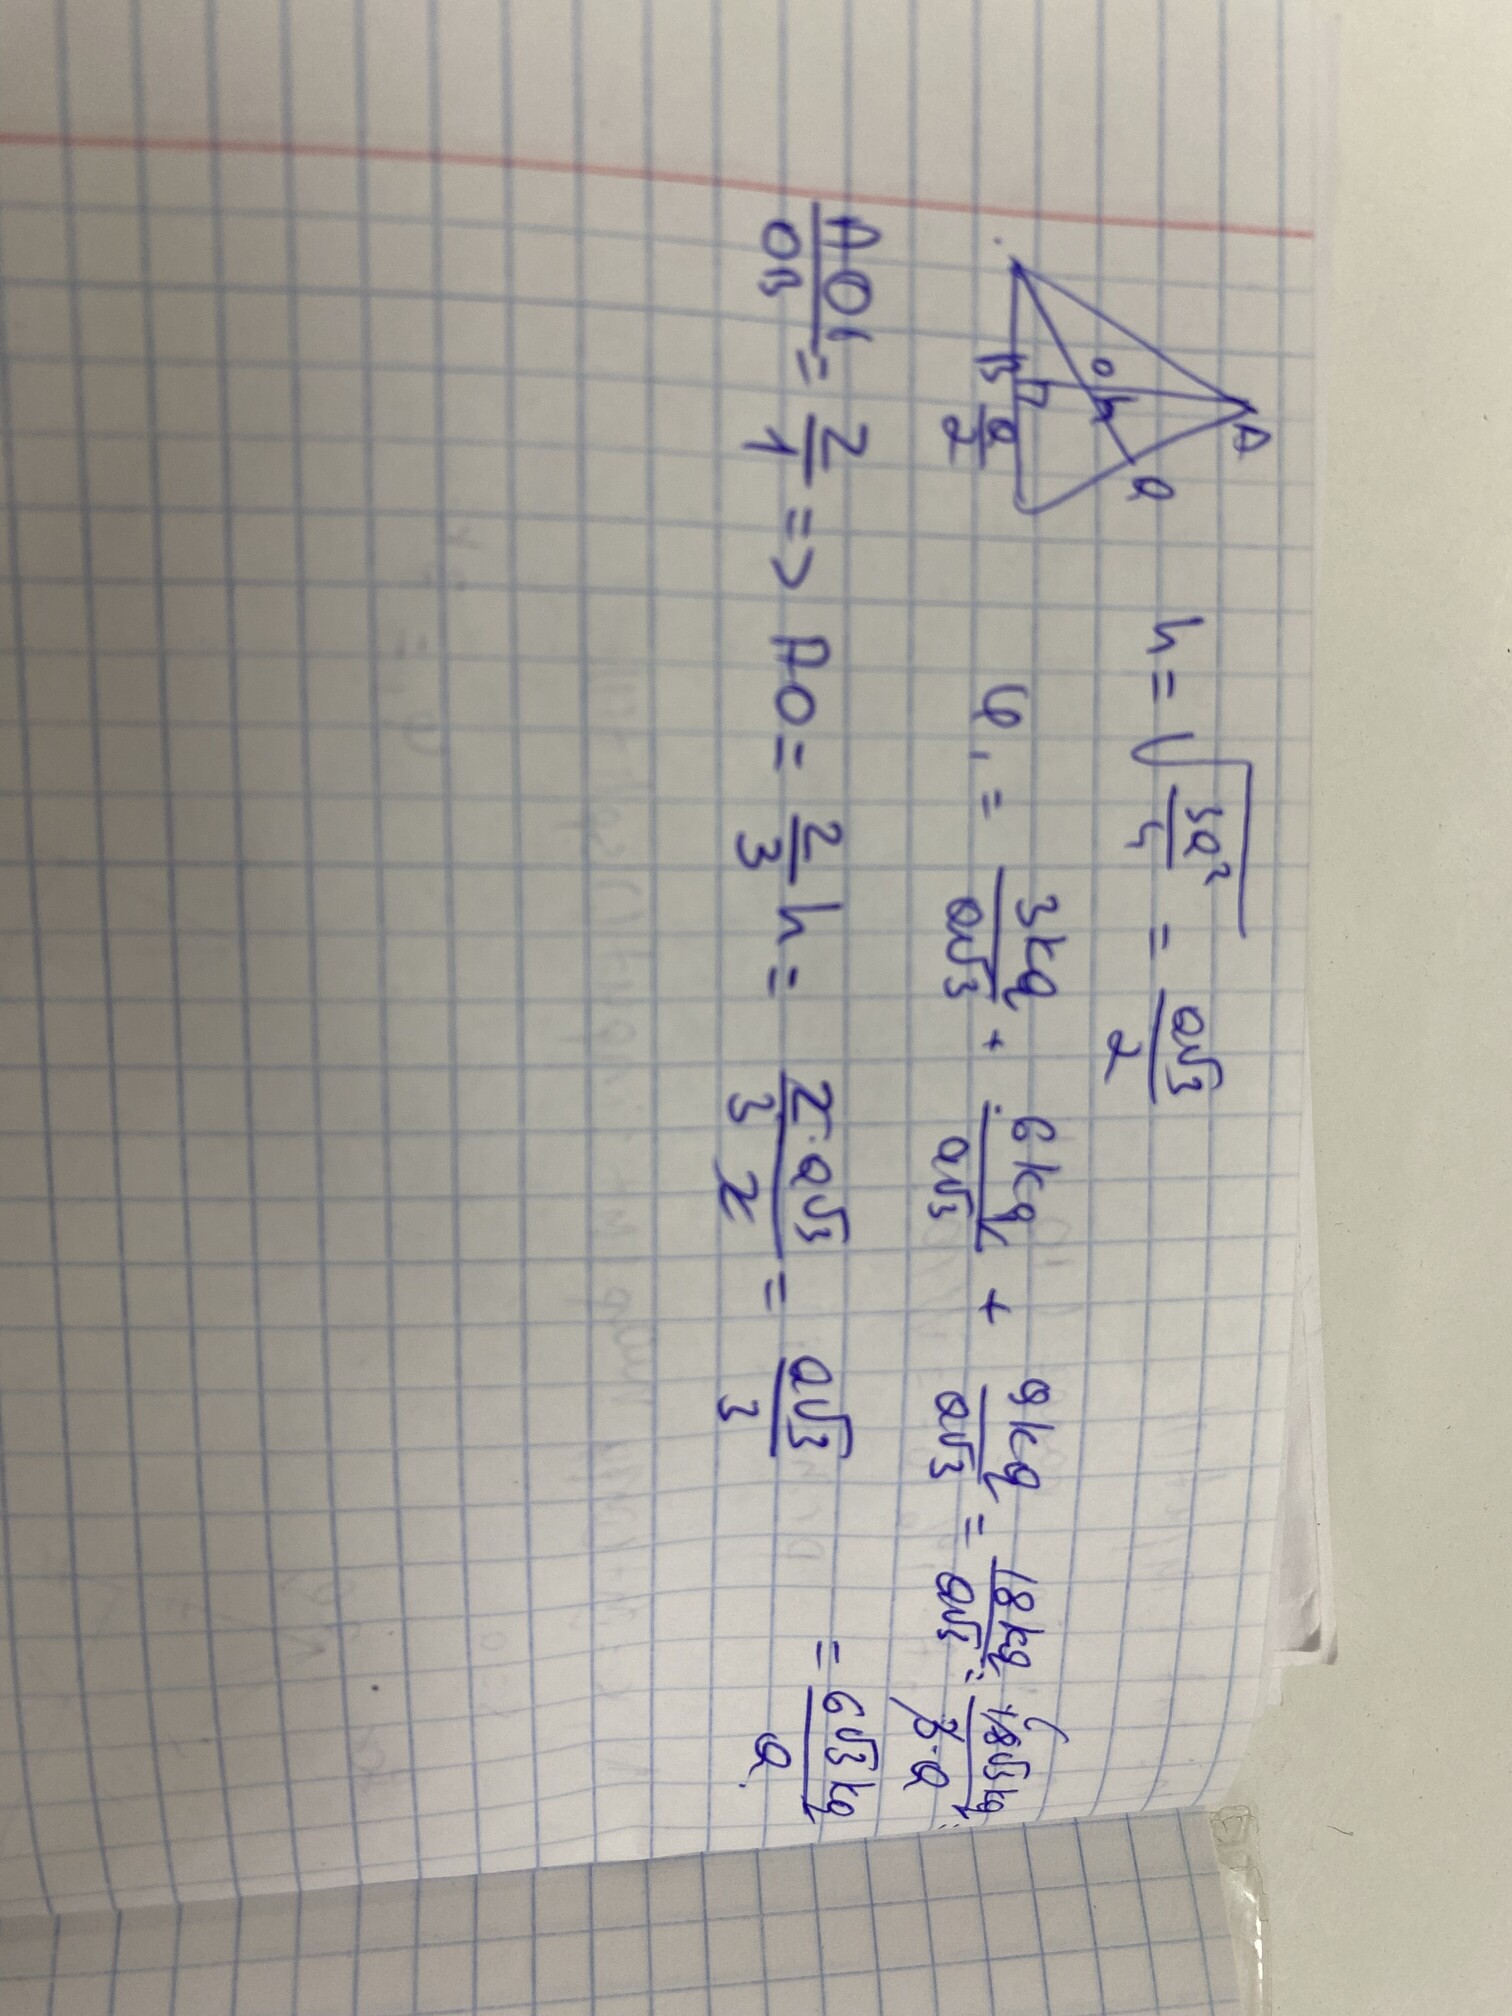 A
a
O
h
B
a/2
h = √(3a²/4) = a√3/2
φ₁ = 3kq/a√3 + 6kq/a√3 + 9kq/a√3 = 18kq/a√3 = 18√3kq/3·a =
6
= 6√3kq/a
AO/OB = 2/1 => AO = 2/3 h = 2·a√3/3 2 = a√3/3